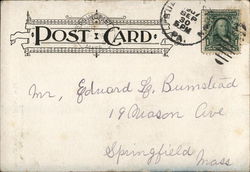 POST CARD
SEP
30
Mr, Edward G. Bumstead
19 Mason Ave
Springfield
Mass